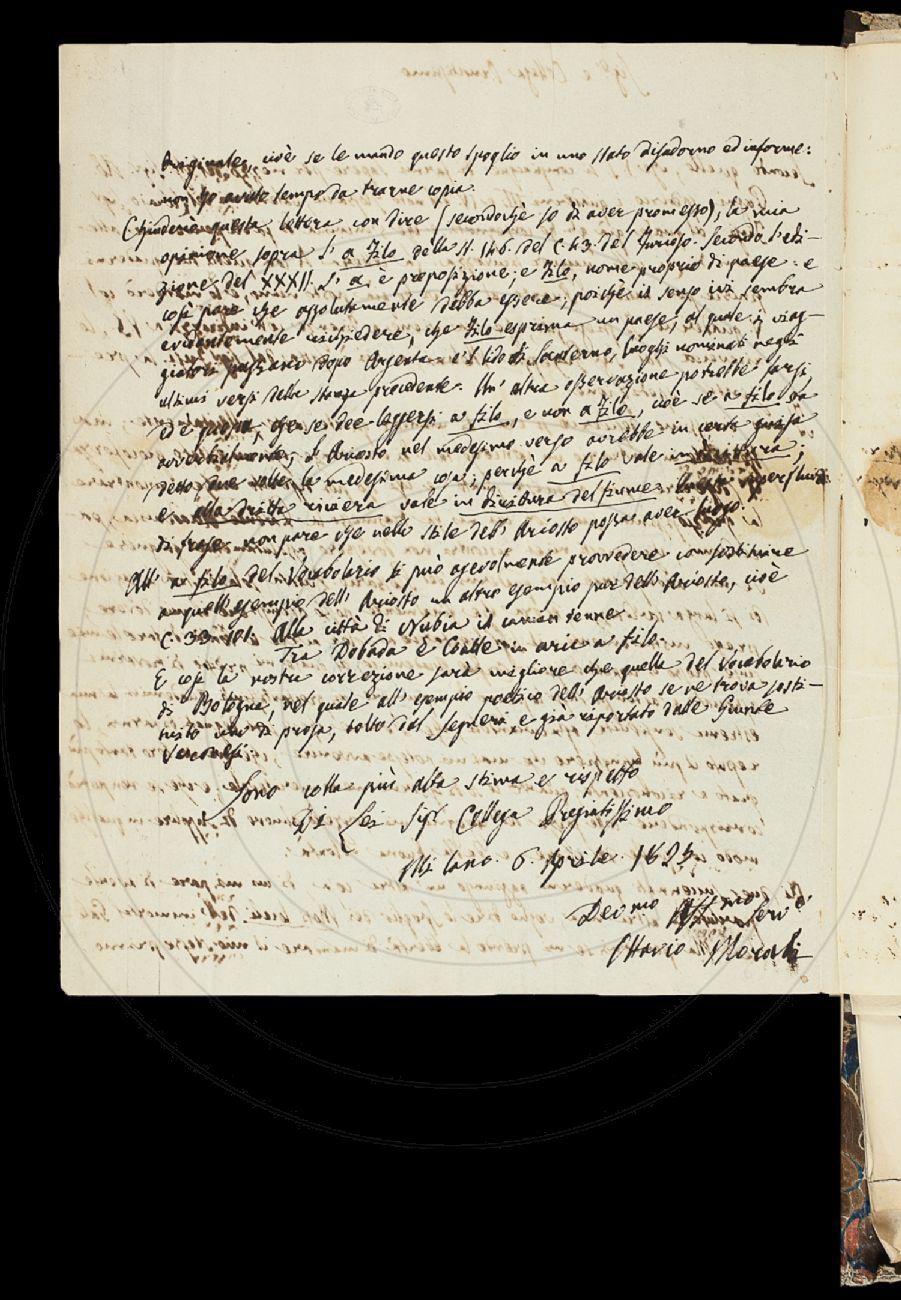 originale, cioè se le mando questo spoglio in uno stato disadorno ed informe:
non ho avuto tempo da trarne copia.
Chiuderò questa lettera con dire (secondochè so di aver promesso), la mia
opinione sopra l' a Filo della St. 146. del C. 43. del Furioso. Secondo l'edi-
zione del XXXII. l' a è preposizione; e Filo, nome proprio di paese: e
così pare che assolutamente debba essere; poichè il senso ivi sembra
evidentemente richiedere, che Filo esprima un paese, al quale i viag-
giatori passano dopo Argenta e 'l lito di Santerno, luoghi nominati negli
ultimi versi della stanza precedente. Un' altra osservazione potrebbe farsi
ed è questa, che se dee leggersi a filo, e non a Filo, cioè se a filo sta
avverbialmente, l' Ariosto nel medesimo verso avrebbe in certa guisa
detto due volte la medesima cosa; perchè a filo vale in dirittura;
e alla dritta riviera vale in dirittura del fiume: questa superfluità
di frase non pare che nello stile dell' Ariosto possa aver luogo.
All' a filo del Vocabolario si può agevolmente provvedere con sostituire
a quell' esempio dell' Ariosto un altro esempio pur dell' Ariosto, cioè
C. 33. 101. Alla città di Nubia il camin tenne
Tra Dobada e Coalle in aria a filo.
E così la nostra correzione sarà migliore che quella del Vocabolario
di Bologna, nel quale all' esempio poetico dell' Ariosto se ne trova sosti-
tuito uno di prosa, tolto dal Segneri, e già riportato dalle Giunte
Veronesi.
Sono colla più alta stima e rispetto
Di Lei Sigr. Collega Pregiatissimo
Milano 6. Aprile 1823
Devmo Affmo Servre
Ottavio Morali